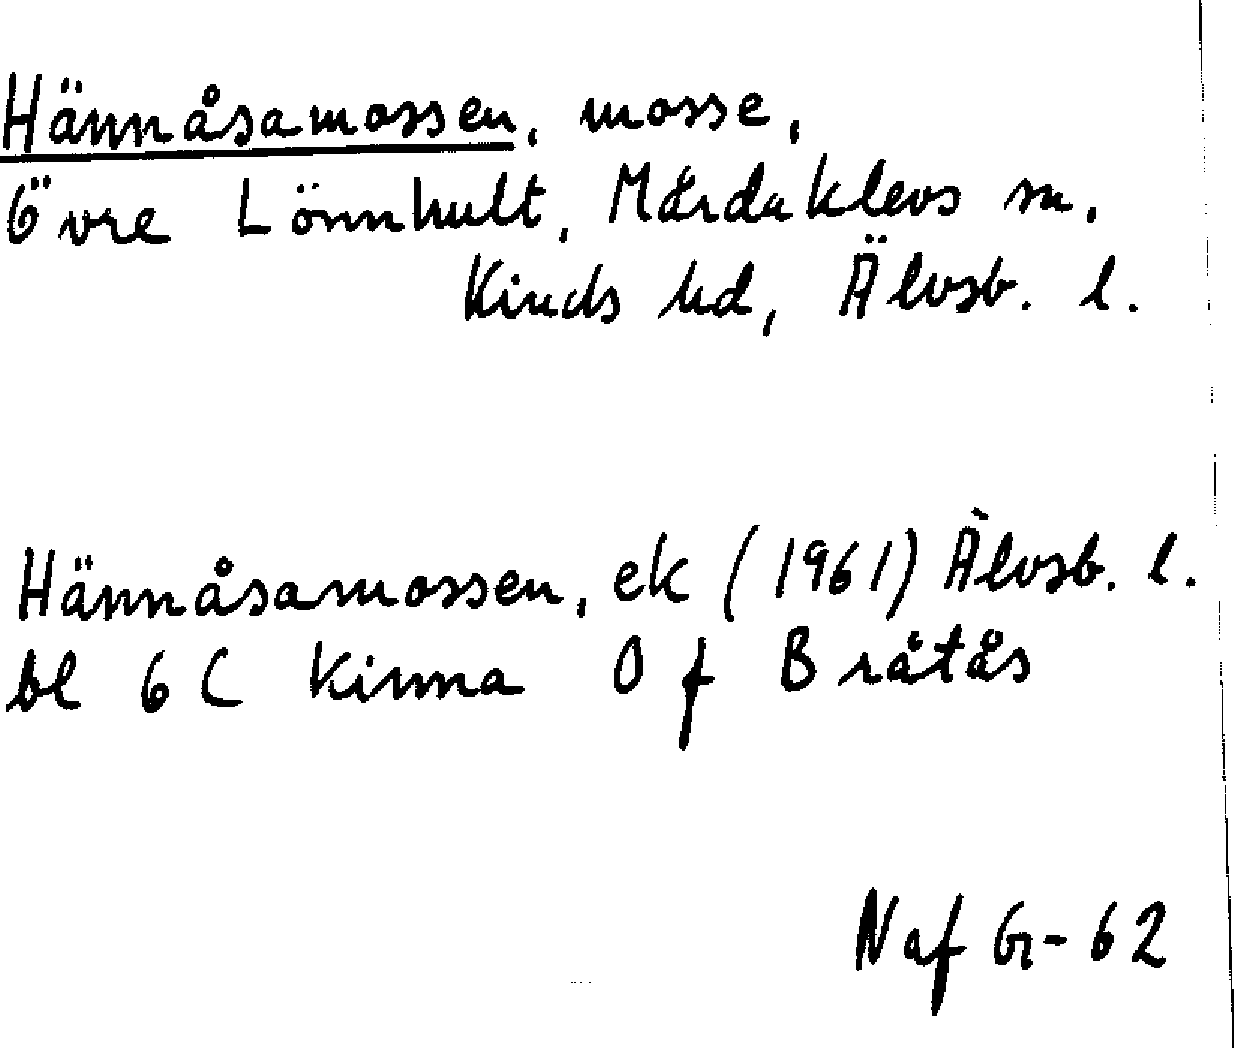 Hännåsamossen, mosse,
Övre Lönnhult, Mårdaklevs sn,
Kinds hd, Älvsb. l.
Hännåsamossen, ek (1961) Älvsb. l.
bl 6 C Kinna O f Bråtås
Naf Gr-62